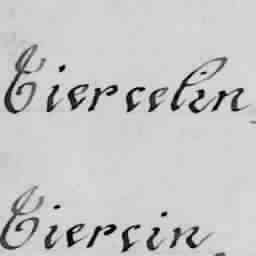 Tiercelin
Tiercin